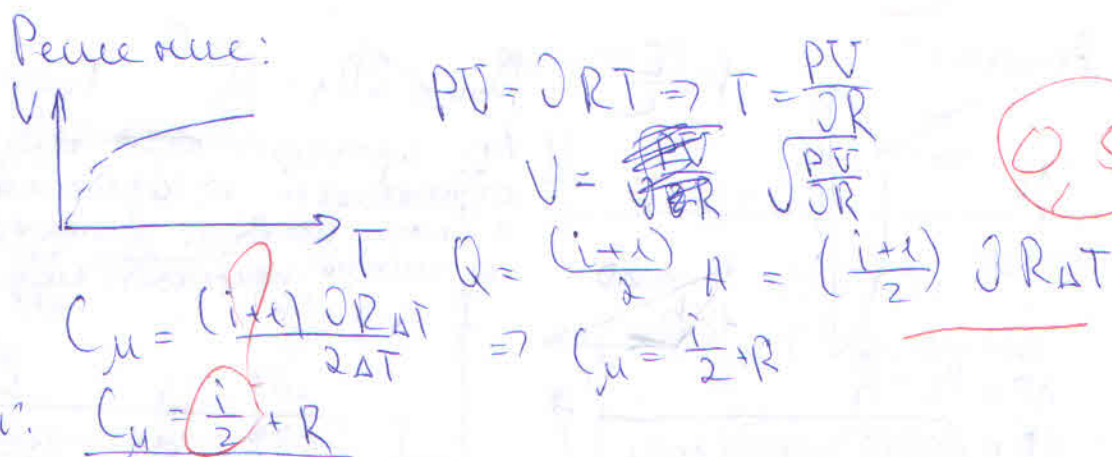 Решение:
V
PV = νRT => T = PV/νR
V = √(PV/νR)
0,5
T
Q = (i+1)/2 A = (i+1/2) νRΔT
Cμ = (i+1) νRΔT/2ΔT => Cμ = i/2 + R
?
Cμ = i/2 + R